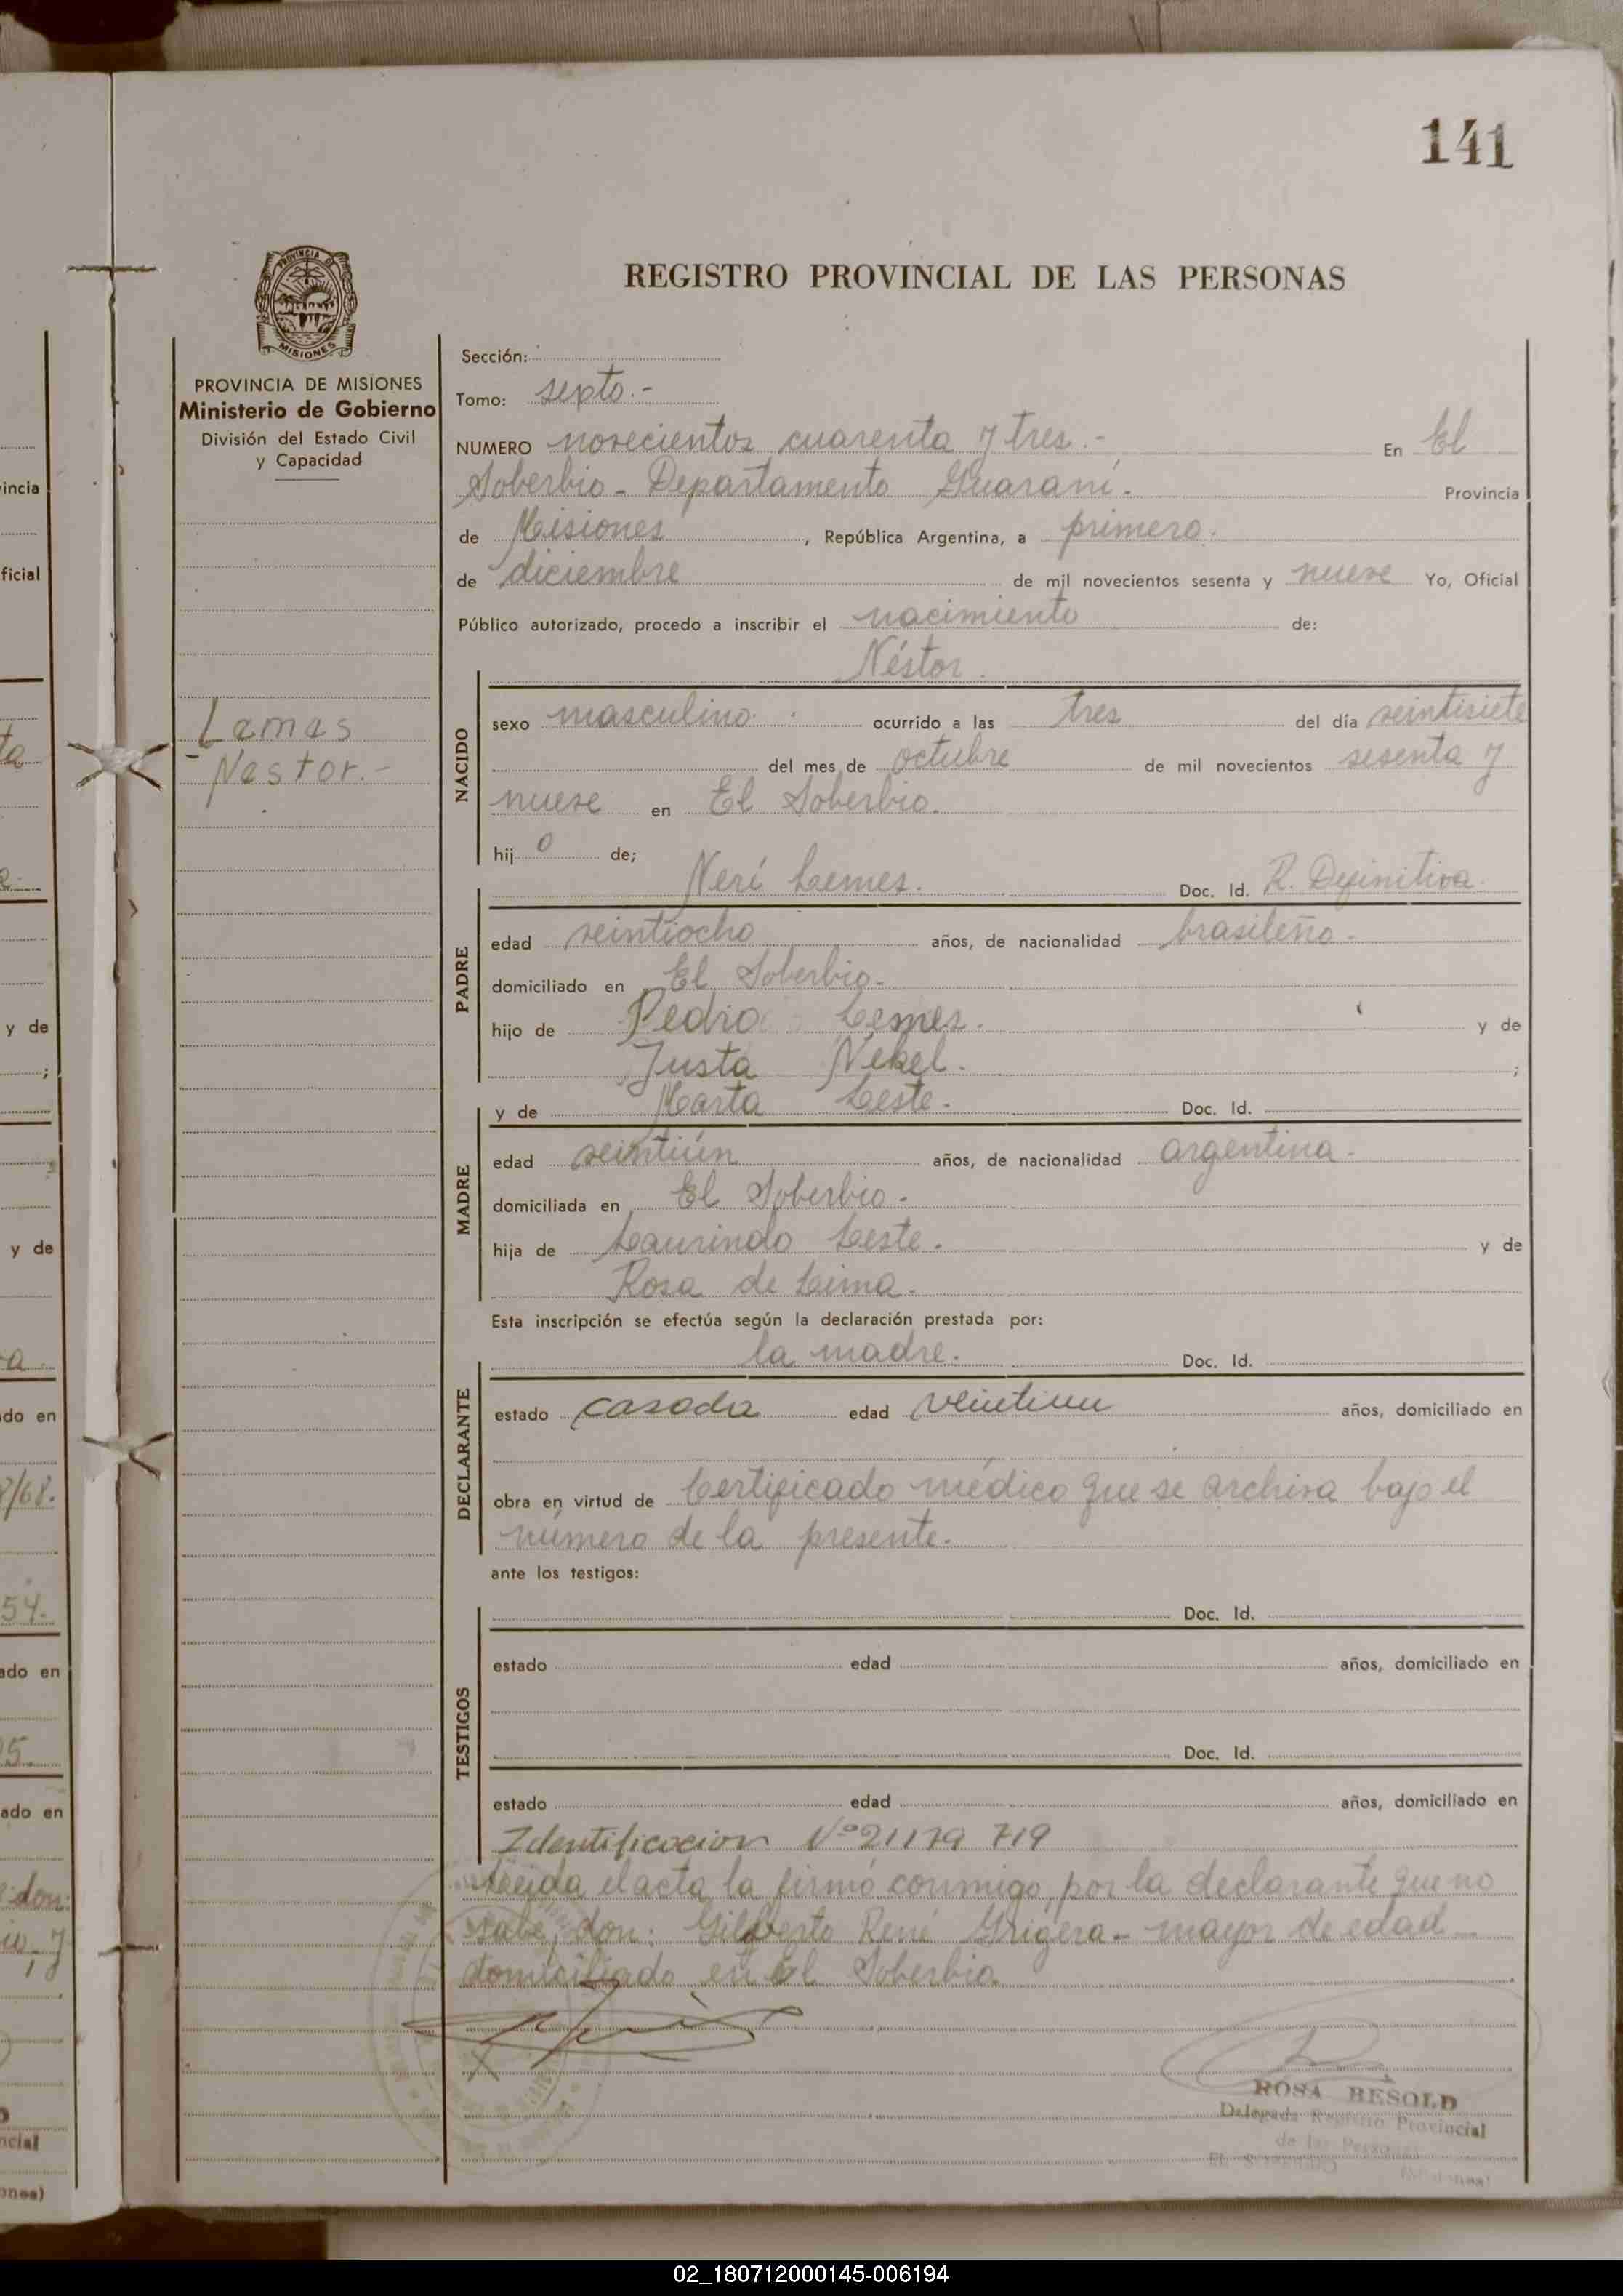 141
REGISTRO PROVINCIAL DE LAS PERSONAS
PROVINCIA DE
MISIONES
PROVINCIA DE MISIONES
Ministerio de Gobierno
División del Estado Civil
y Capacidad
Lemes
Nestor.-
Sección:
Tomo: sexto.-
NUMERO novecientos cuarenta y tres.- En El
Soberbio - Departamento Guaraní. Provincia
de Misiones, República Argentina, a primero.
de diciembre de mil novecientos sesenta y nueve Yo, Oficial
Público autorizado, procedo a inscribir el nacimiento de:
Néstor.
NACIDO
sexo masculino. ocurrido a las tres del día veintisiete
del mes de octubre de mil novecientos sesenta y
nueve en El Soberbio.
hij o de;
Neri Lemes. Doc. Id. R. Definitiva.
PADRE
edad veintiocho años, de nacionalidad brasileño.
domiciliado en El Soberbio.
hijo de Pedro Lemes. y de
Justa Nekel. ;
y de Marta Leste. Doc. Id.
MADRE
edad veintiún años, de nacionalidad argentina.
domiciliada en El Soberbio.
hija de Laurindo Leste. y de
Rosa de Lima.
Esta inscripción se efectúa según la declaración prestada por:
la madre. Doc. Id.
DECLARANTE
estado casada edad veintiun años, domiciliado en
obra en virtud de Certificado médico que se archiva bajo el
número de la presente.
ante los testigos:
Doc. Id.
TESTIGOS
estado edad años, domiciliado en
Doc. Id.
estado edad años, domiciliado en
Identificacion Nº 21179 719
Leída el acta la firmó conmigo, por la declarante que no
sabe, don: Gilberto René Grigera - mayor de edad
domiciliado en El Soberbio.
ROSA BESOLD
Delegada Registro Provincial
de las Personas
incia
ficial
y de
;
y de
do en
8/68.
54.
ado en
5
ado en
don:
02_180712000145-006194